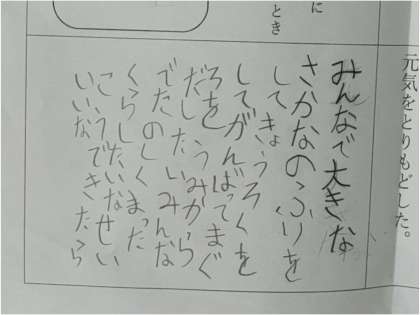 元気をとりもどした。
に
とき
みんなで大きな
さかなのふりを
してきょうろくを
してがんばってまぐ
ろを
だしたいうみから
みんな
でたのしくまった
くらしたいなせい
こうできたら
いいな